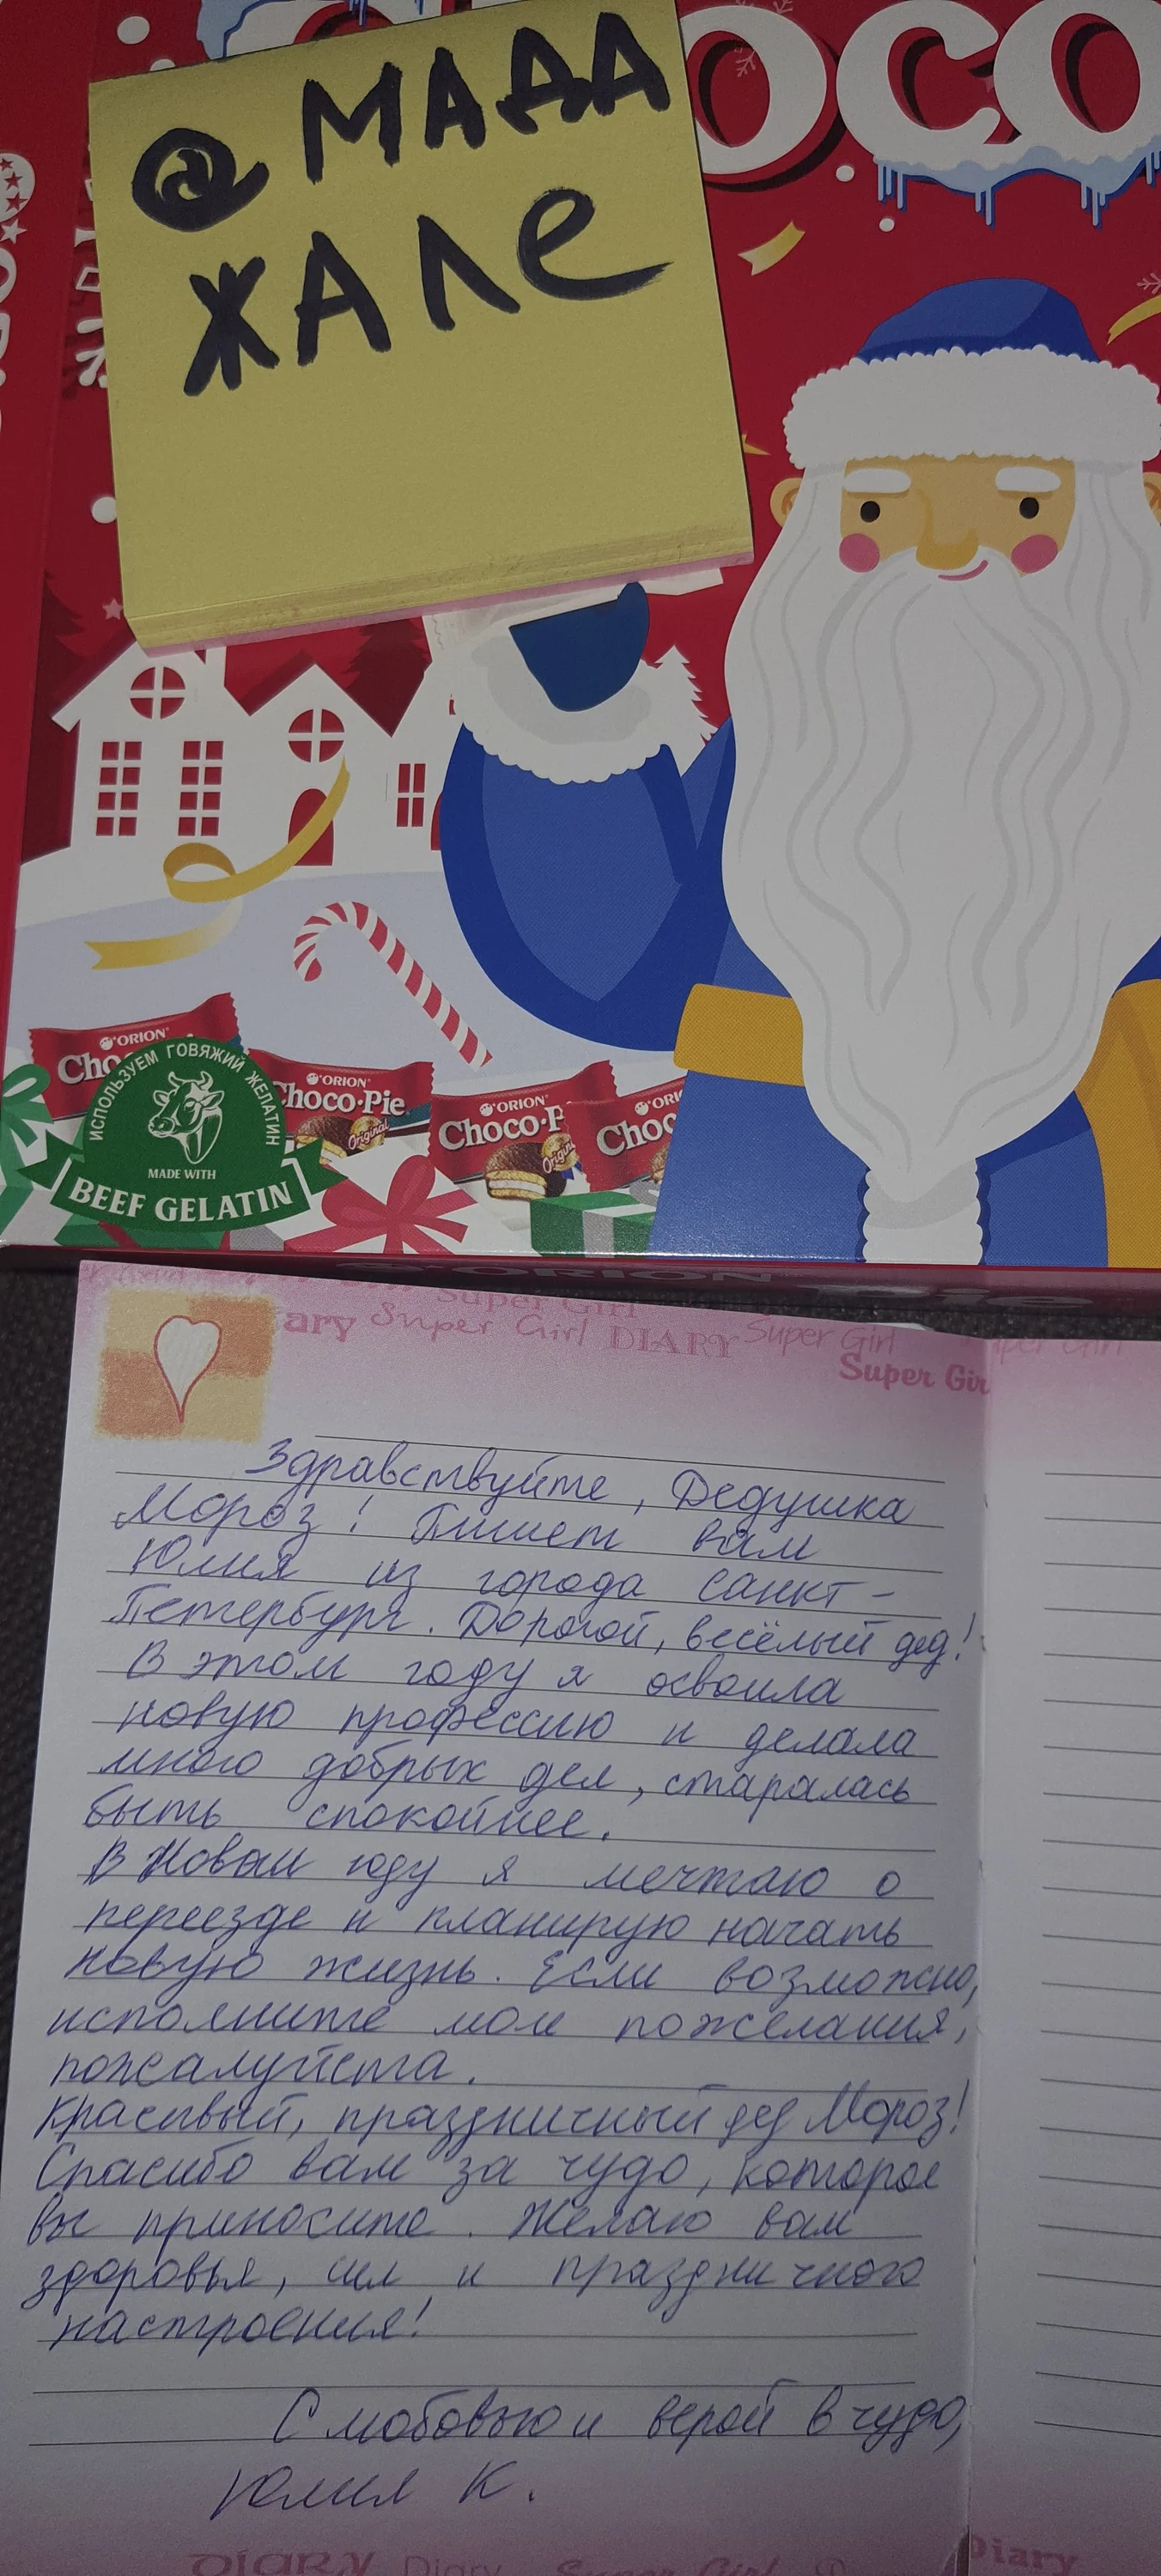 @ МАДА
ЖАЛЕ
OCO
ORION
Cho
ORION
Choco·Pie
Original
ORION
Choco·P
Origin
ORI
Choc
ИСПОЛЬЗУЕМ ГОВЯЖИЙ ЖЕЛАТИН
MADE WITH
BEEF GELATIN
ORION
Pie
Super Girl
ary Super Girl DIARY Super Girl
Super Gir
Здравствуйте, Дедушка
Мороз! Пишет вам
Юлия из города Санкт-
Петербург. Дорогой, весёлый дед!
В этом году я освоила
новую профессию и делала
много добрых дел, старалась
быть спокойнее.
В Новом году я мечтаю о
переезде и планирую начать
новую жизнь. Если возможно,
исполните мои пожелания,
пожалуйста.
Красивый, праздничный дед Мороз!
Спасибо вам за чудо, которое
вы приносите. Желаю вам
здоровья, сил и праздничного
настроения!
С любовью и верой в чудо,
Юлия К.
DIARY Diary Super Girl
Diary